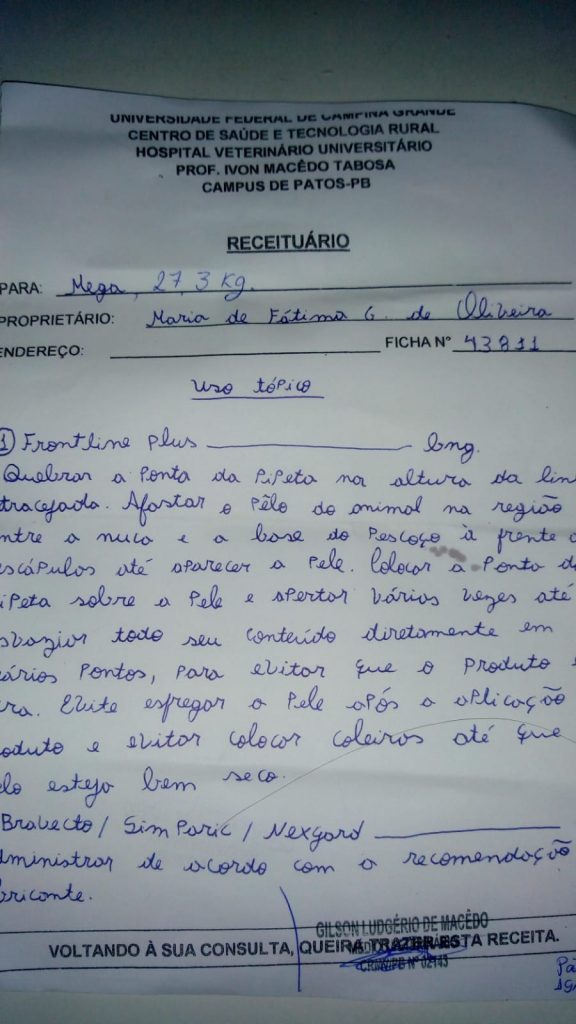 UNIVERSIDADE FEDERAL DE CAMPINA GRANDE
CENTRO DE SAÚDE E TECNOLOGIA RURAL
HOSPITAL VETERINÁRIO UNIVERSITÁRIO
PROF. IVON MACÊDO TABOSA
CAMPUS DE PATOS-PB
RECEITUÁRIO
PARA: Mega, 27,3 Kg.
PROPRIETÁRIO: Maria de Fátima G. de Oliveira
ENDEREÇO: FICHA N° 43811
Uso tópico
1 Frontline Plus bng.
Quebrar a Ponta da Pipeta na altura da lin
tracejada. Afastar o pêlo do animal na região
ntre a nuca e a base do Pescoço à frente d
escápulas até aparecer a Pele. Colocar a Ponta da
ipeta sobre a Pele e apertar várias vezes até
svaziar todo seu conteúdo diretamente em
ários Pontos, para evitar que o Produto e
rra. Evite esfregar a Pele após a aplicação
oduto e evitar colocar coleiras até que
lo esteja bem seco.
Bravecto / Simparic / Nexgard
dministrar de acordo com a recomendação
bricante.
GILSON LUDGÉRIO DE MACÊDO
VOLTANDO À SUA CONSULTA, QUEIRA TRAZER ESTA RECEITA.
CRMV/PB Nº 02143
Pa